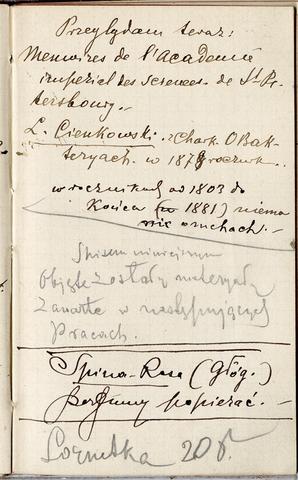 Przeglądam teraz:
Memoires de l'Academie
imperiel des sciences de St Pe-
tersbourg.-
L. Cienkowski. Chark. O Bak-
teryach. w 1879 rocznik.
w rocznikach od 1803 do
końca (w 1881) niema
nic o muchach.-
Spisem niniejszym
Objęte zostały materyały
Zawarte w następujących
Pracach.
Spina-Rosa (Głóg.)
perfumy popierać.-
Lornetka 20 r.